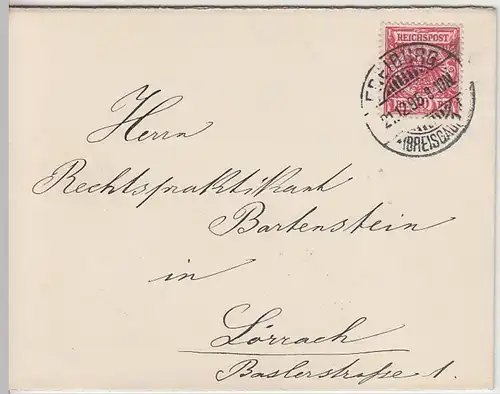 REICHSPOST
FREIBURG
21.12.95.9-10N.
(BREISGAU)
Herrn
Rechtspraktikant
Bartenstein
in
Lörrach
Baslerstraße 1.